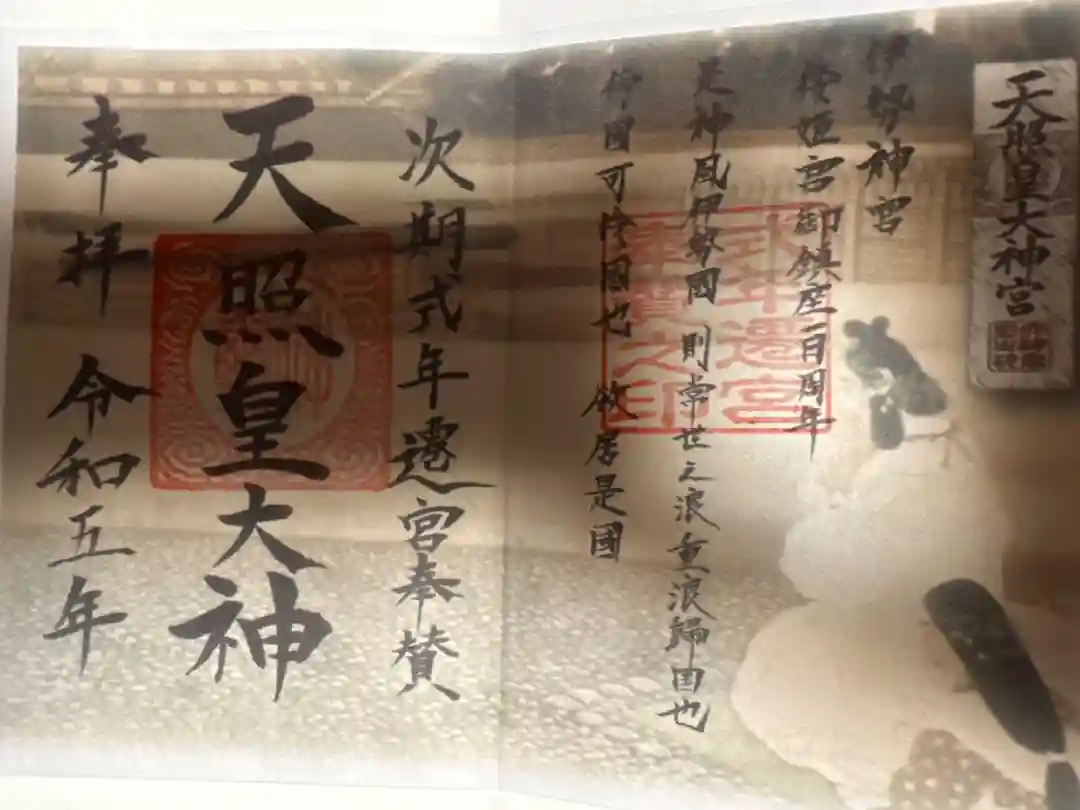 天照皇大神宮
伊勢神宮
倭姫宮御鎮座一百周年
是神風伊勢國 則常世之浪重浪歸国也
傍国可怜國也 欲居是國
式年遷宮
奉賛之印
次期式年遷宮奉賛
天照皇大神
奉拝 令和五年